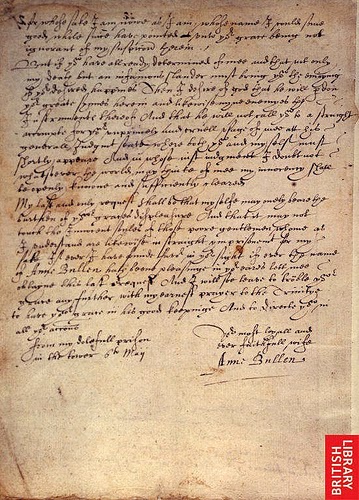 for whose sake I am now as I am, whose name I could some
good while since have pointed at, your grace being not
ignorant of my suspition therein.
But if you have allready determined of mee and that not only
my death but an infamous slander must bring you the enjoying
of your desired happiness Then I desire of god that he will pardon
your great sinnes herein and likewise my enemyes the
Instruments thereof And that he will not call you to a straight
accompt for your unprincely and cruell usage of mee at his
generall Judgment seate where both you and my selfe must
shortly appeare And in whose just judgment I doubt not
whatsoever the world may thinke of mee my innocency shall
be openly knowne and sufficiently cleared
My last and only request shall be that my selfe may onely beare the
burthen of your graces displeasure And that it may not
touch the Innocent soules of those poore gentlemen whom as
I understand are likewise in straight imprisonment for my
sake If ever I have found favor in your sight if ever the name
of Anne Bullen hath beene pleasing in your eares lett mee
obtayne this last request And I will soe leave to trouble your
grace any further with my ernest prayer to the Trinitye
to have your grace in his good keeping And to direct you in
all your actions
from my dolefull prison
in the tower 6th May
Your most loyall and
ever faithfull wife
Anne Bullen
BRITISH
LIBRARY